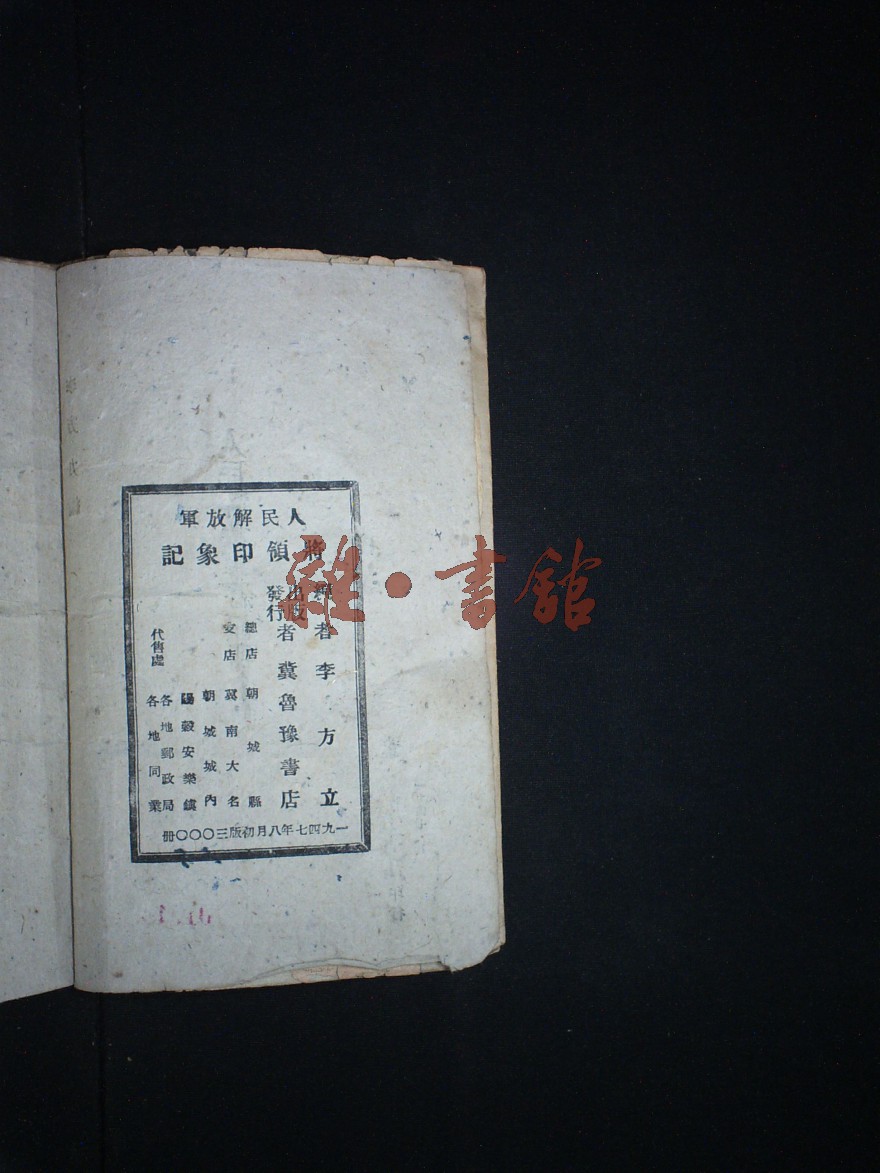 人民解放軍
將領印象記
編者 李方立
出版
發行
者 冀魯豫書店
總店 朝城縣
支店 冀南大名
朝城城內
陽穀安樂鎮
代售處
各地郵政局
各地同業
一九四七年八月初版三〇〇〇冊
雜·書館